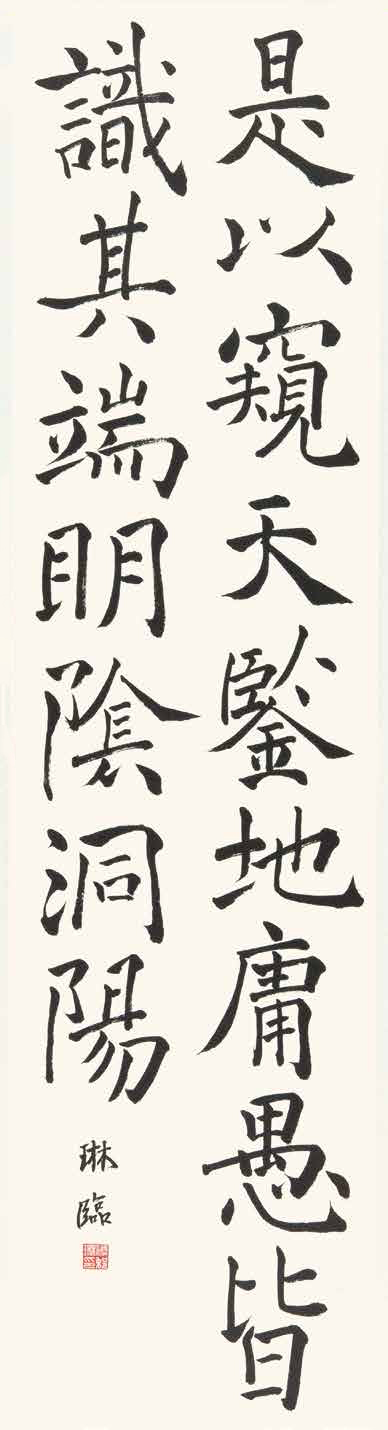 是以窺天鑒地庸愚皆
識其端明陰洞陽
琳臨